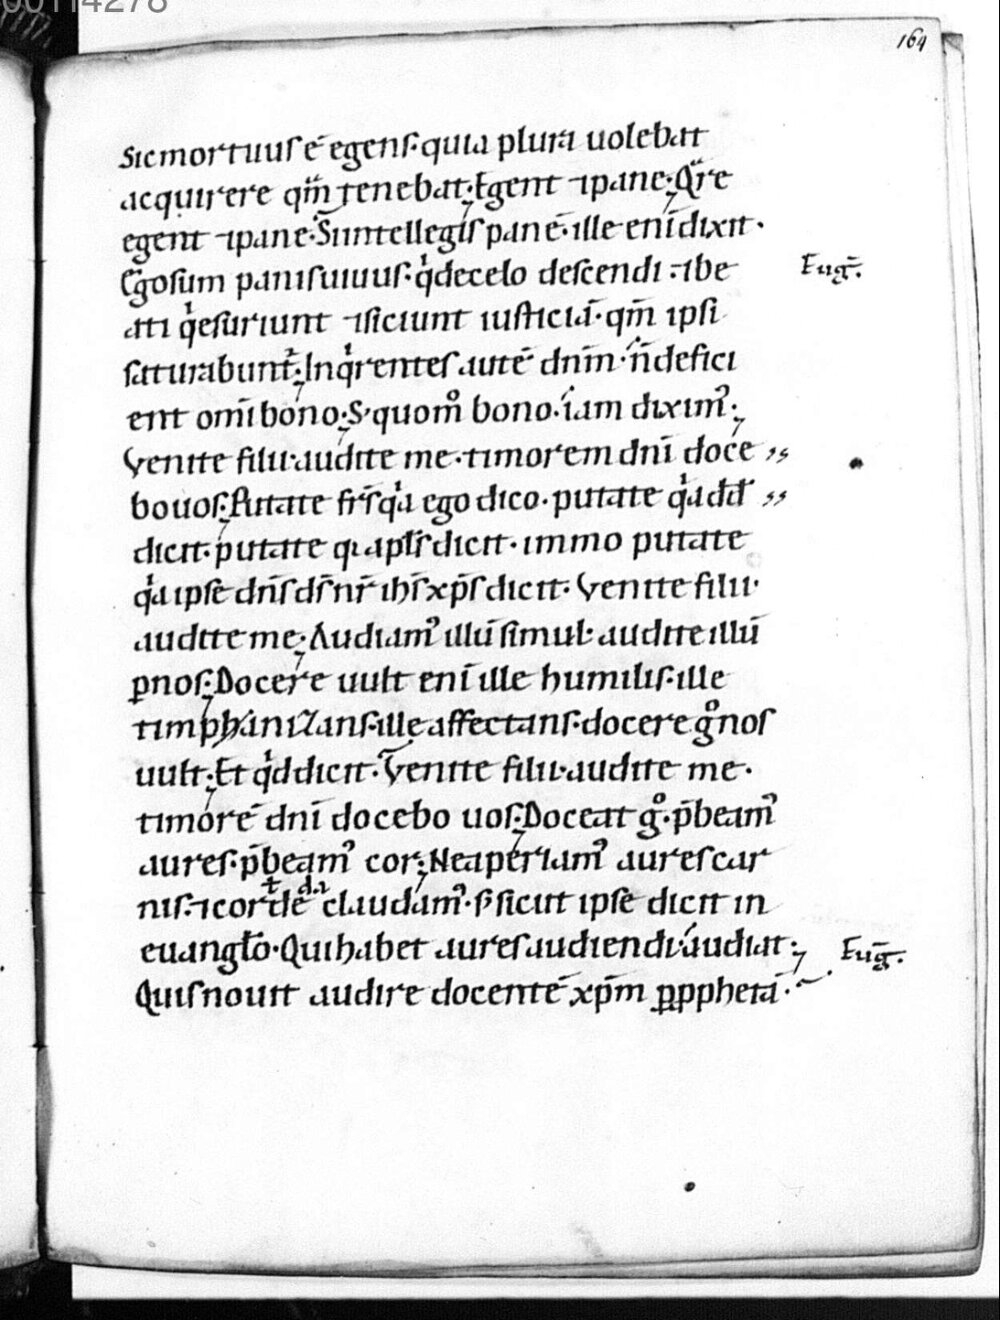 00114278
164
Sic mortuuſ ē egenſ· quia plura uolebat
acquirere qm̄ tenebat; Egent ⁊ pane; Qͣre
egent ⁊ pane· Si intellegiſ panē· ille eni dixit·
Ego ſum paniſ uiuuſ· qͥ de celo deſcendi ⁊ be
Eug̅.
ati qͥ eſuriunt ⁊ ſiciunt iuſticiā· qm̄ ipſi
ſaturabunt̃; Inqͥrenteſ autē dnm̄· n̄ defici
ent omi bono; S; quom̊ bono· iam diximꝰ;
Venite filii· audite me· timorem dn̄i doce
bo uoſ; Putate fr̄ſ qͥa ego dico· putate qͥa dd̄
dicit· putate qͥa aplſ̄ dicit· immo putate
qͥa ipſe dn̄ſ dſ̄ nr̄ ihſ̄ xp̄ſ dicit· Venite filii·
audite me; Audiamꝰ illū ſimul· audite illū
ꝑ noſ; Docere uult eni ille humiliſ· ille
timphanizanſ· ille affectanſ· docere g̊ noſ
uult; Et qͥd dicit· Venite filii· audite me·
timorē dn̄i docebo uoſ; Doceat g̊· p̄beamꝰ
aureſ· p̄beamꝰ cor; Ne aperiamꝰ aureſ car
niſ· ⁊ cordē claudamꝰ· ſ; ſicut ipſe dicit in
euangl̄o· Qui habet aureſ audiendi· audiat;
Eug̅.
Quiſ nouit audire docentē xp̄m ꝑ pphetā·